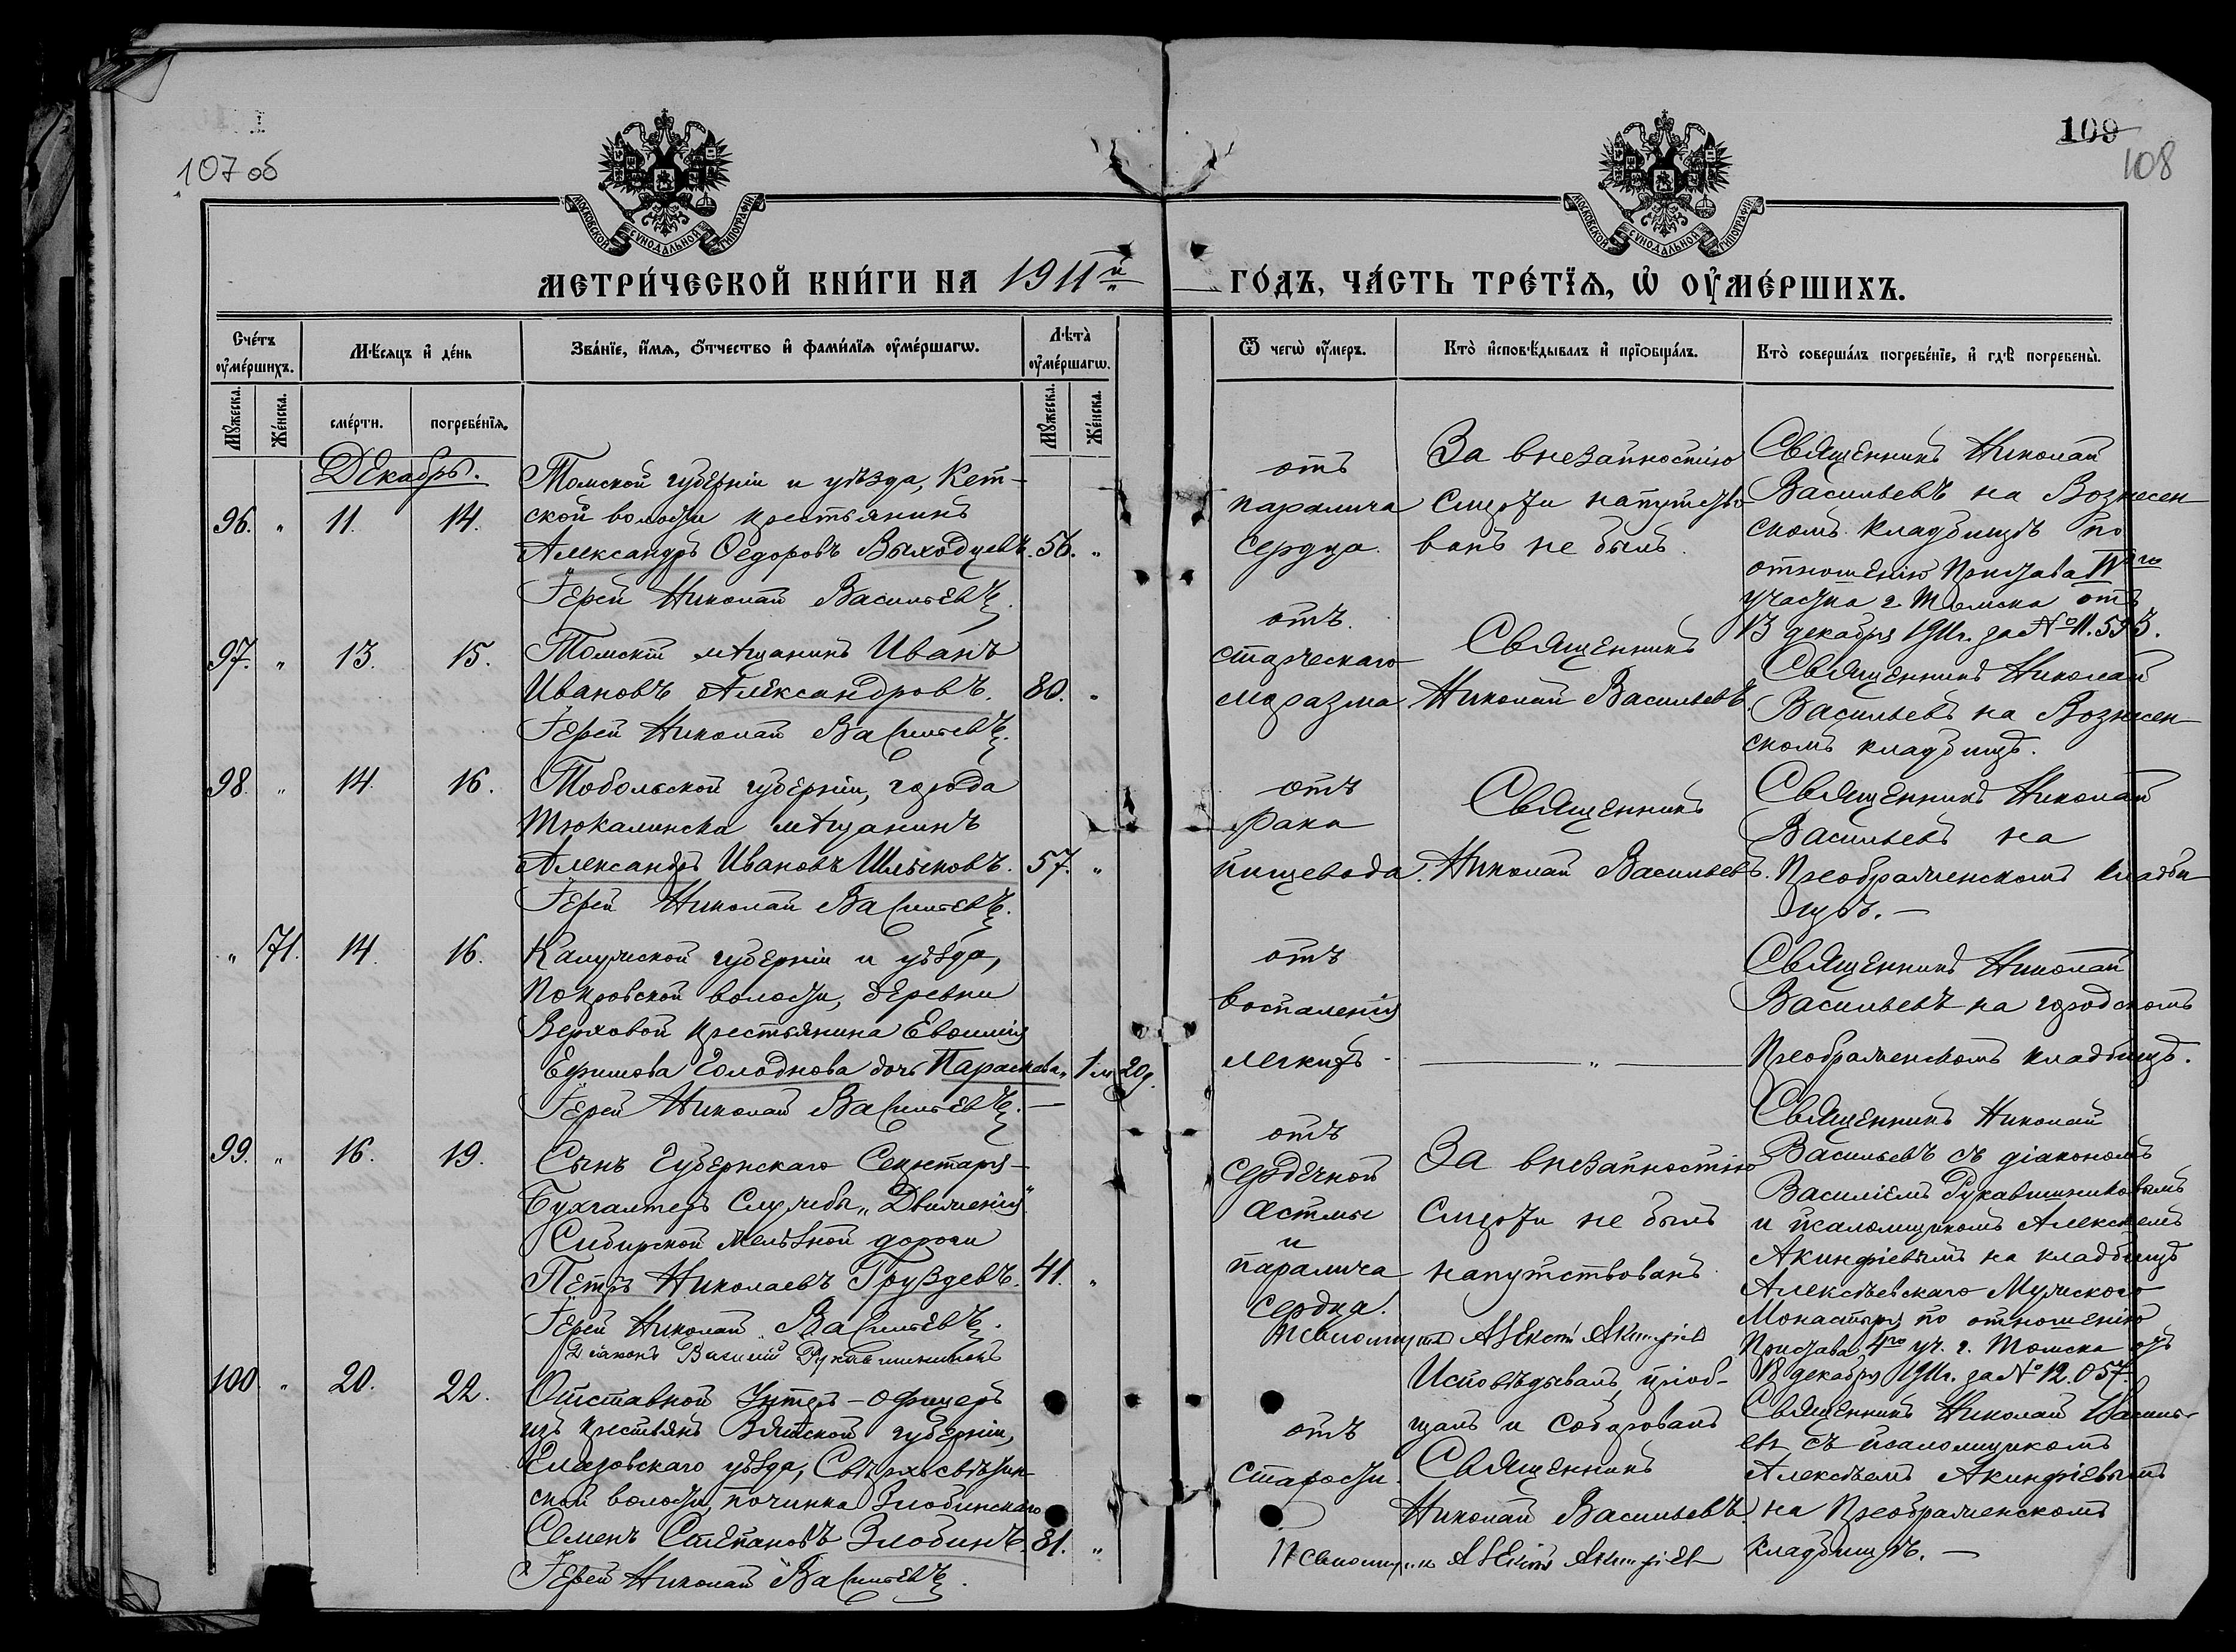 107 об
109
108
МОСКОВСКОЙ СѴНОДАЛЬНОЙ ТИПОГРАФІИ
МОСКОВСКОЙ СѴНОДАЛЬНОЙ ТИПОГРАФІИ
МЕТРИ́ЧЕСКОЙ КНИ́ГИ НА 1911й ГО́ДЪ, ЧА́СТЬ ТРЕ́ТЇѦ, Ѡ҆ ОУ҆МЕ́РШИХЪ.
Сче́тъ оу҆ме́ршихъ.
Мꙋ́жеска.
Же́нска.
Мѣ́сѧцъ и҆ де́нь
сме́рти.
погребе́нїѧ.
Зва́нїе, и҆́мѧ, ѻ҆́тчество и҆ фами́лїѧ оу҆ме́ршагѡ.
Лѣ́та оу҆ме́ршагѡ.
Мꙋ́жеска.
Же́нска.
Ѿ чегѡ̀ оу҆́меръ.
Кто̀ и҆сповѣ́дывалъ и҆ прїѡбща́лъ.
Кто̀ соверша́лъ погребе́нїе, и҆ гдѣ̀ погребены̀.
Декабрь.
96. " 11. 14.
Томской губерніи и уѣзда, Кет-
ской волости крестьянинъ
Александръ Ѳедоровъ Выходцевъ. 56. "
Іерей Николай Васильевъ.
отъ
паралича
сердца.
За внезапностію
смерти напутство
ванъ не былъ.
Священникъ Николай
Васильевъ на Вознесен
скомъ кладбищѣ по
отношенію Пристава IVго
участка г. Томска отъ
13 декабря 1911г. за № 11.593.
97. " 13. 15.
Томскій мѣщанинъ Иванъ
Ивановъ Александровъ. 80. "
Іерей Николай Васильевъ.
отъ
старческаго
маразма
Священникъ
Николай Васильевъ.
Священникъ Николай
Васильевъ на Вознесен
скомъ кладбищѣ.
98. " 14. 16.
Тобольской губерніи, города
Тюкалинска мѣщанинъ
Александръ Ивановъ 57. "
Іерей Николай Васильевъ.
отъ
рака
пищевода.
Священникъ
Николай Васильевъ.
Священникъ Николай
Васильевъ на
Преображенскомъ кладби
щѣ. —
" 71. 14. 16.
Калужской губерніи и уѣзда,
Покровской волости, деревни
Верховой крестьянина
Ефимова Голоднова дочь Параскева " 1 м 20 д.
Іерей Николай Васильевъ. —
отъ
воспаленія
легкихъ
— " —
Священникъ Николай
Васильевъ на городскомъ
Преображенскомъ кладбищѣ.
99. " 16. 19.
Сынъ Губернскаго Секретаря-
Бухгалтеръ Службы „Движенія"
Сибирской желѣзной дороги
Петръ Николаевъ Груздевъ. 41. "
Іерей Николай Васильевъ.
Діаконъ Василій Рукавишниковъ
отъ
сердечной
астмы
и
паралича
сердца.
За внезапностію
смерти не былъ
напутствованъ
Псаломщикъ Алексій Акинфіевъ
Священникъ Николай
Васильевъ съ діакономъ
Василіемъ Рукавишниковымъ
и псаломщикомъ Алексѣемъ
Акинфіевымъ на кладбищѣ
Алексѣевскаго Мужского
Монастыря по отношенію
Пристава 4го уч. г. Томска отъ
18 декабря 1911г. за № 12.057.
100. " 20. 22.
Отставной Унтеръ-офицеръ
изъ крестьянъ Вятской губерніи,
Глазовскаго уѣзда,
ской волости, починка Злобинскаго
Семенъ Степановъ Злобинъ. 81. "
Іерей Николай Васильевъ.
отъ
старости.
Исповѣдывалъ, пріоб-
щалъ и соборовалъ
Священникъ
Николай Васильевъ
Псаломщикъ Алексій Акинфіевъ
Священникъ Николай Василь-
евъ съ псаломщикомъ
Алексѣемъ Акинфіевымъ
на Преображенскомъ
кладбищѣ. —